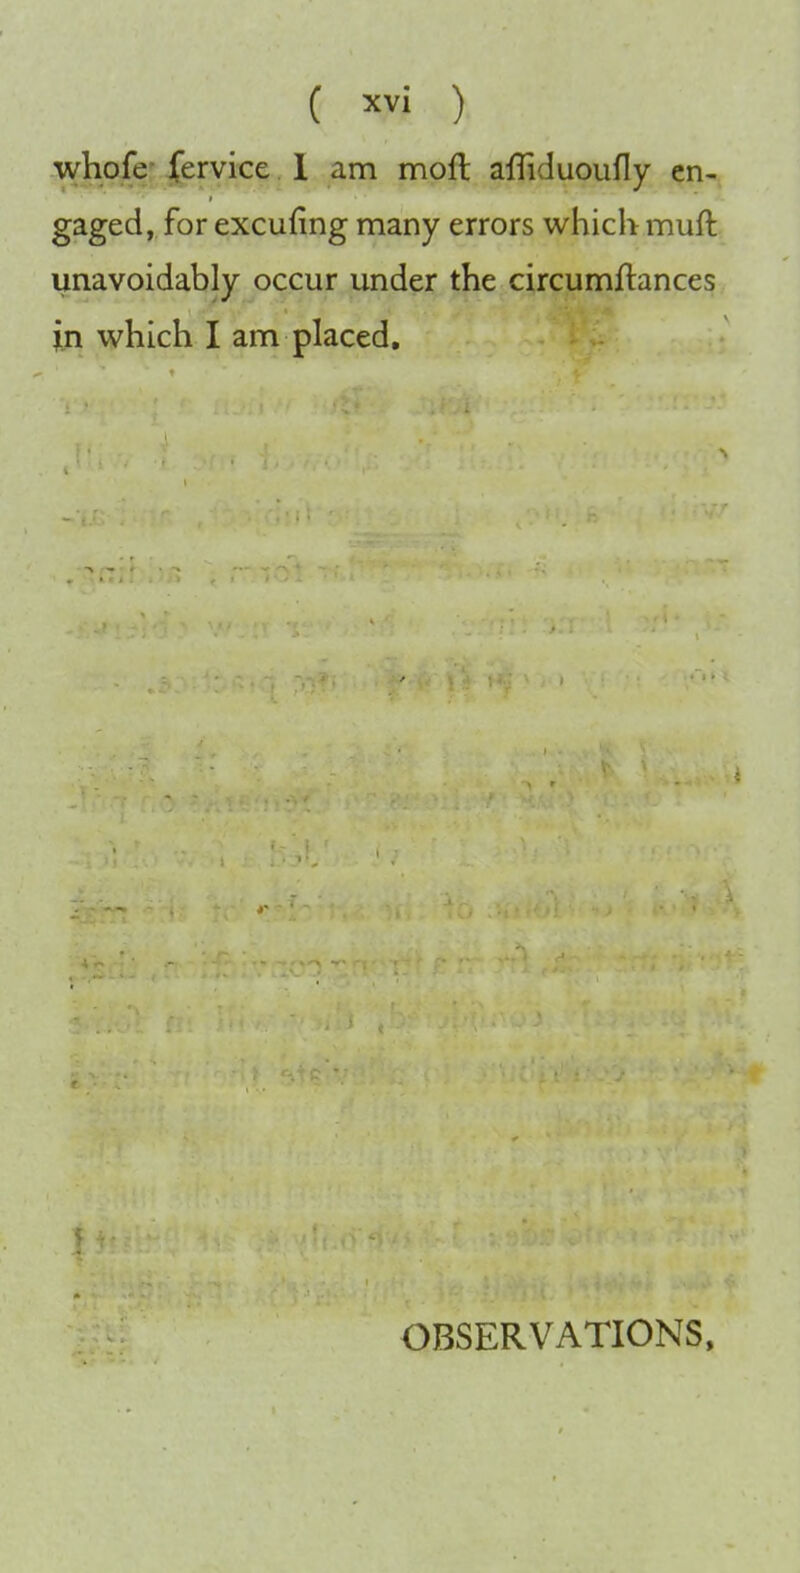 ( xvi )
whoſe ſervice I am moſt aſſiduouſly en-
gaged, for excuſing many errors which muſt
unavoidably occur under the circumſtances
in which I am placed.
OBSERVATIONS,